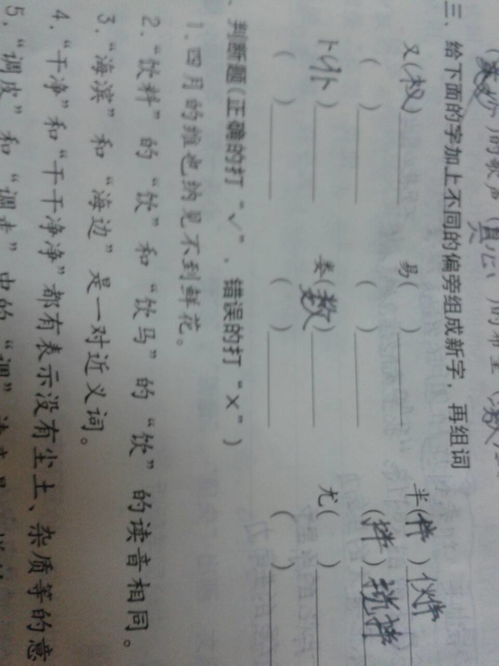 三、给下面的字加上不同的偏旁组成新字，再组词
又(权)____ 易( )____ 半(伴)伙伴
( )____ ( )____ (拌)搅拌
卜(仆)____ 娄(数)____ 尤( )____
( )____ ( )____ ( )____
、判断题(正确的打“√”，错误的打“×”)
1.四月的维也纳见不到鲜花。
2.“饮料”的“饮”和“饮马”的“饮”的读音相同。
3.“海滨”和“海边”是一对近义词。
4.“干净”和“干干净净”都有表示没有尘土、杂质等的意
5.“调皮”和“调走”中的“调”